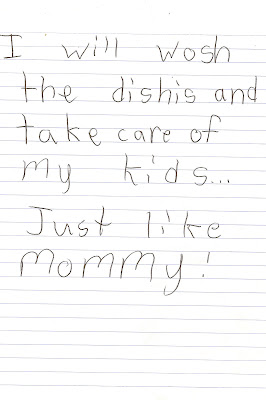 I will wosh
the dishis and
take care of
my kids...
Just like
mommy!